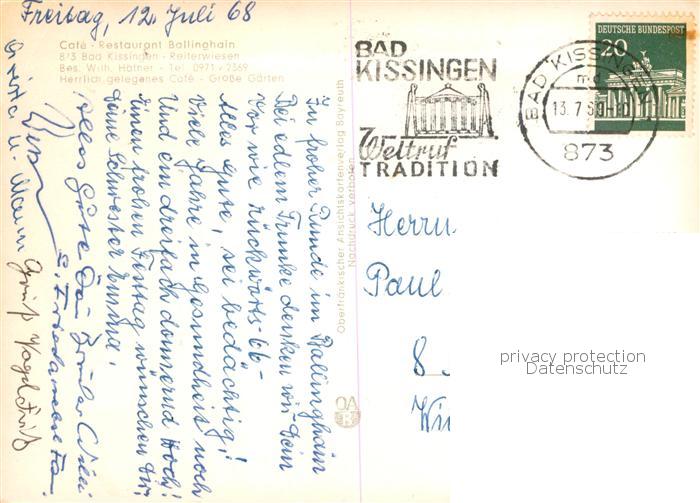 Freitag, 12. Juli 68
Café - Restaurant Ballinghain
873 Bad Kissingen - Reiterwiesen
Bes. Wilh. Hafner - Tel. 0971 - 2369
Herrlich gelegenes Café - Große Gärten
In froher Runde im Ballinghain
Bei edlem Trunke denken wir Dein
Vor wie rückwärts 66 -
Alles Gute, sei bedächtig!
Viele Jahre in Gesundheit noch
Und ein dreifach donnernd Hoch!
Einen frohen Festtag wünschen Dir,
Deine Schwester Emma,
Alles Gute Dein Bruder
u.
Gruß
Oberfränkischer Ansichtskartenverlag Bayreuth
Nachdruck verboten
OA
B
BAD
KISSINGEN
Weltruf
TRADITION
BAD KISSING
13.7.68
873
DEUTSCHE BUNDESPOST
20
Herrn
Paul
8
privacy protection
Datenschutz